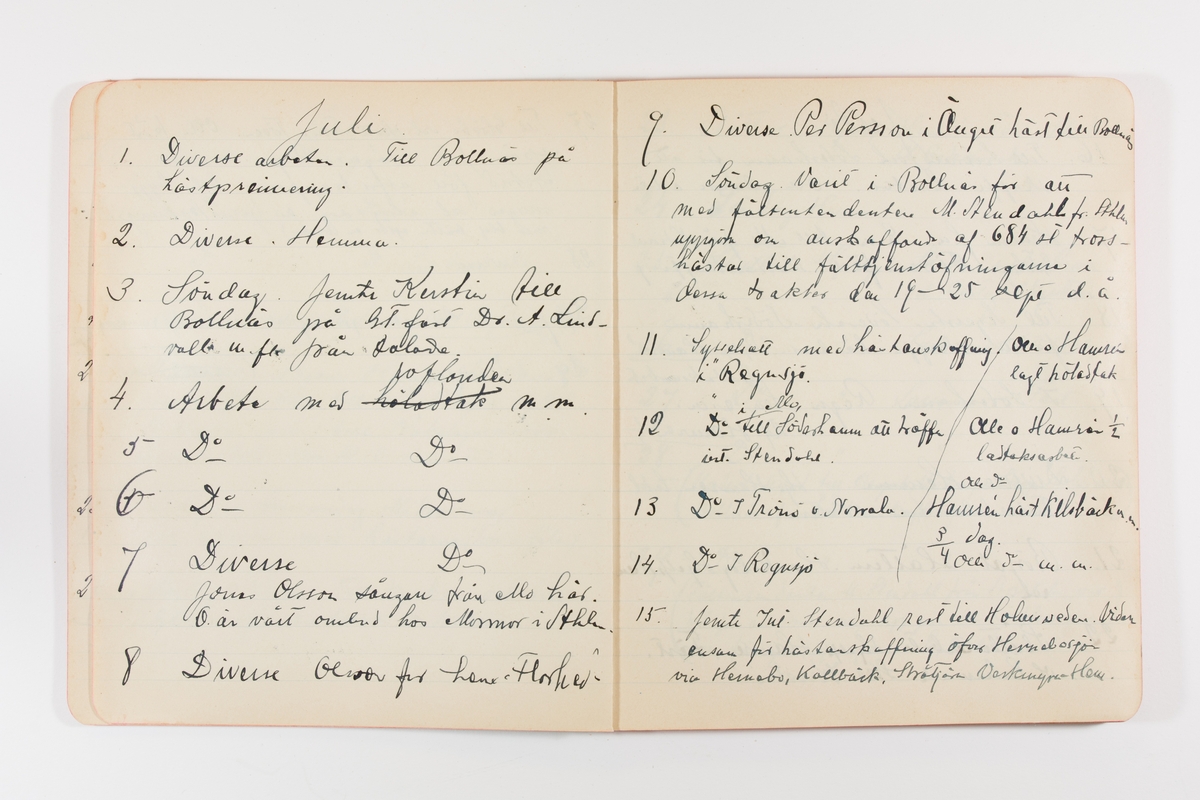 Juli
1. Diverse arbeten. Till Bollnäs på
hästpremiering.
2. Diverse. Hemma.
3. Söndag. Jemte Kerstin till
Bollnäs på GT. fäst Dr. A. Lind-
vall m. fl. från
4. Arbete med höladtak m. m.
5 Do Do
6 Do Do
7 Diverse Do
Jonas Olsson sångare från Mo här.
O. är vårt ombud hos Mormor i Sthlm.
8 Diverse Olsson for hem "Florhed"
9. Diverse Per Persson i Änget häst till Bollnäs
10. Söndag. Varit i Bollnäs för att
med fältintendenten M. Stendahl fr. Sthlm
uppgöra om anskaffande af 684 st tross-
hästar till fälttjenstöfningarna i
dessa trakter den 19–25 sept d. å.
11. Sysselsatt med hästanskaffning. Ole o Hamrén
i Regnsjö. lagt höladtak
12 Do i Mo, till Söderhamn att träffa Ole o Hamrén 1/2
int. Stendahl. ladtaksarbete.
Ole do
13 Do I Trönö o. Norrala. Hamrén häst Kilsbäck m. m.
3/4 dag.
14. Do I Regnsjö Ole do m. m.
15. Jemte Int. Stendahl rest till Holmsveden. Vidare
ensam för hästanskaffning öfver Hernebosjön
via Hernebo, Kallbäck, Stråtjärn Hem.